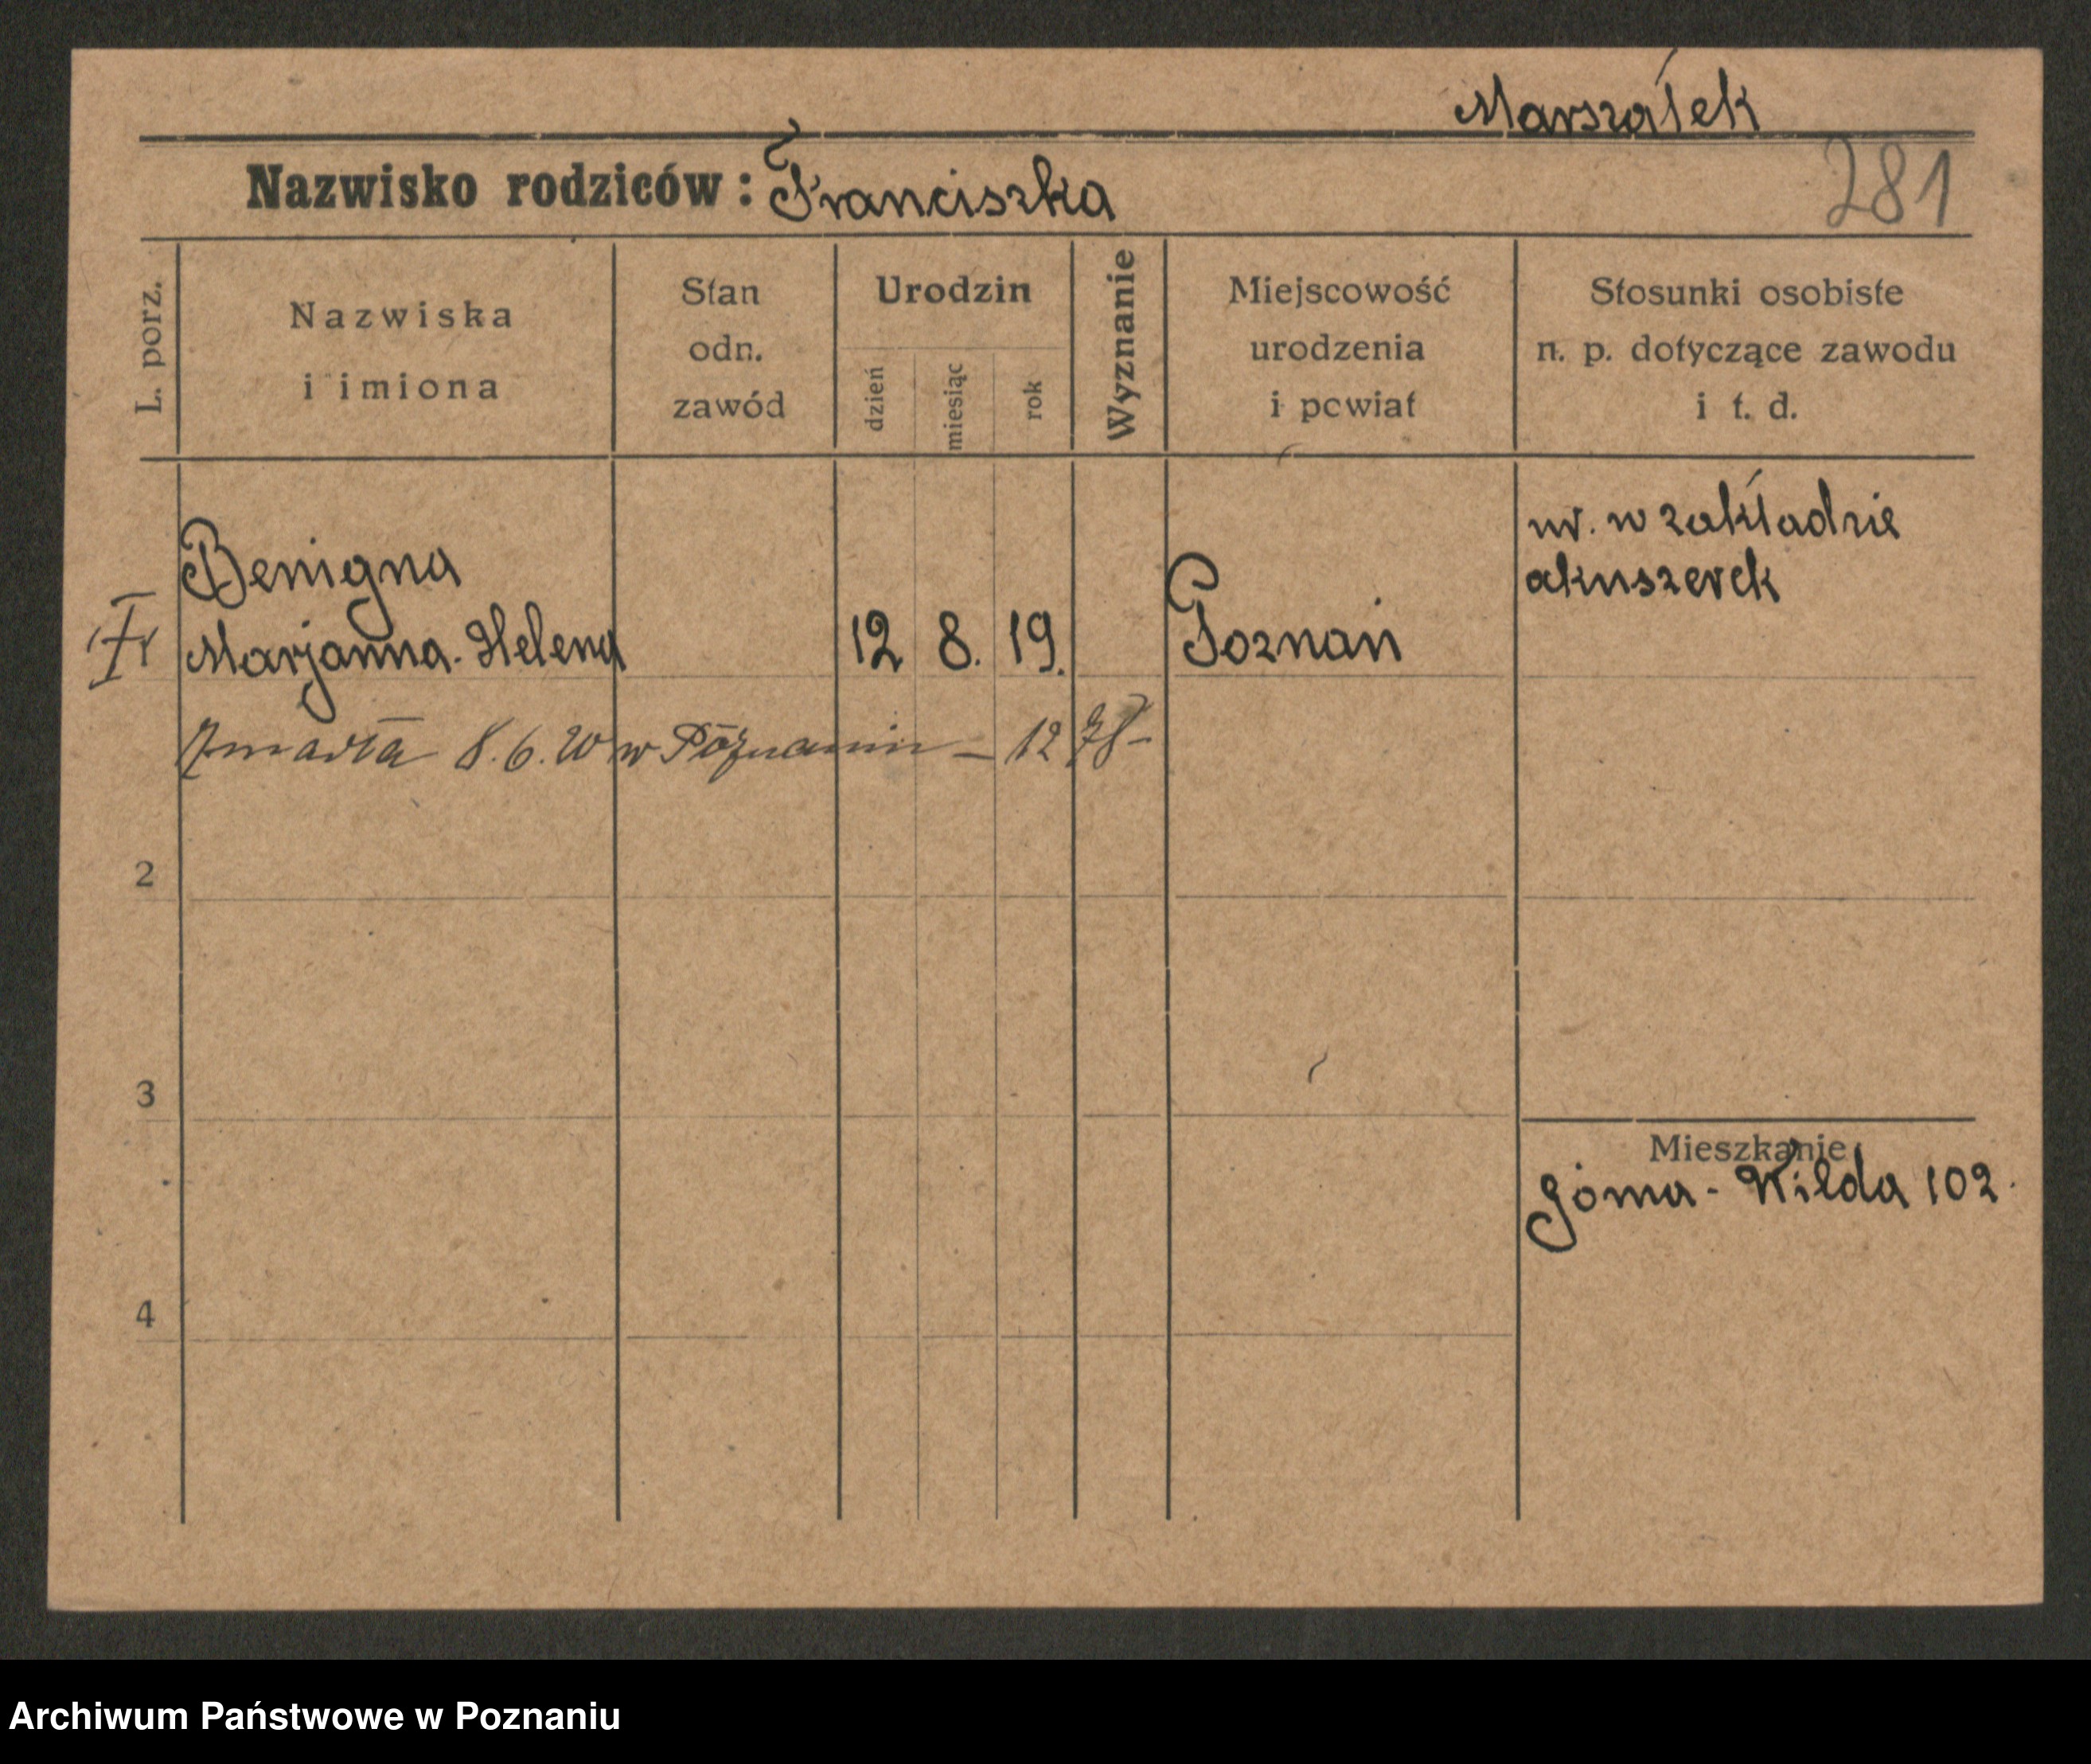 Marszałek
Nazwisko rodziców: Franciszka
281
L. porz.
Nazwiska
i imiona
Stan
odn.
zawód
Urodzin
dzień
miesiąc
rok
Wyznanie
Miejscowość
urodzenia
i powiat
Stosunki osobiste
n. p. dotyczące zawodu
i t. d.
ur. w zakładzie
akuszerek
Benigna
Marjanna-Helena 12 8. 19. Poznań
Zmarła 8.6.20 w Poznaniu – 1278 –
2
3
Mieszkanie
Górna-Wilda 102.
4
Archiwum Państwowe w Poznaniu